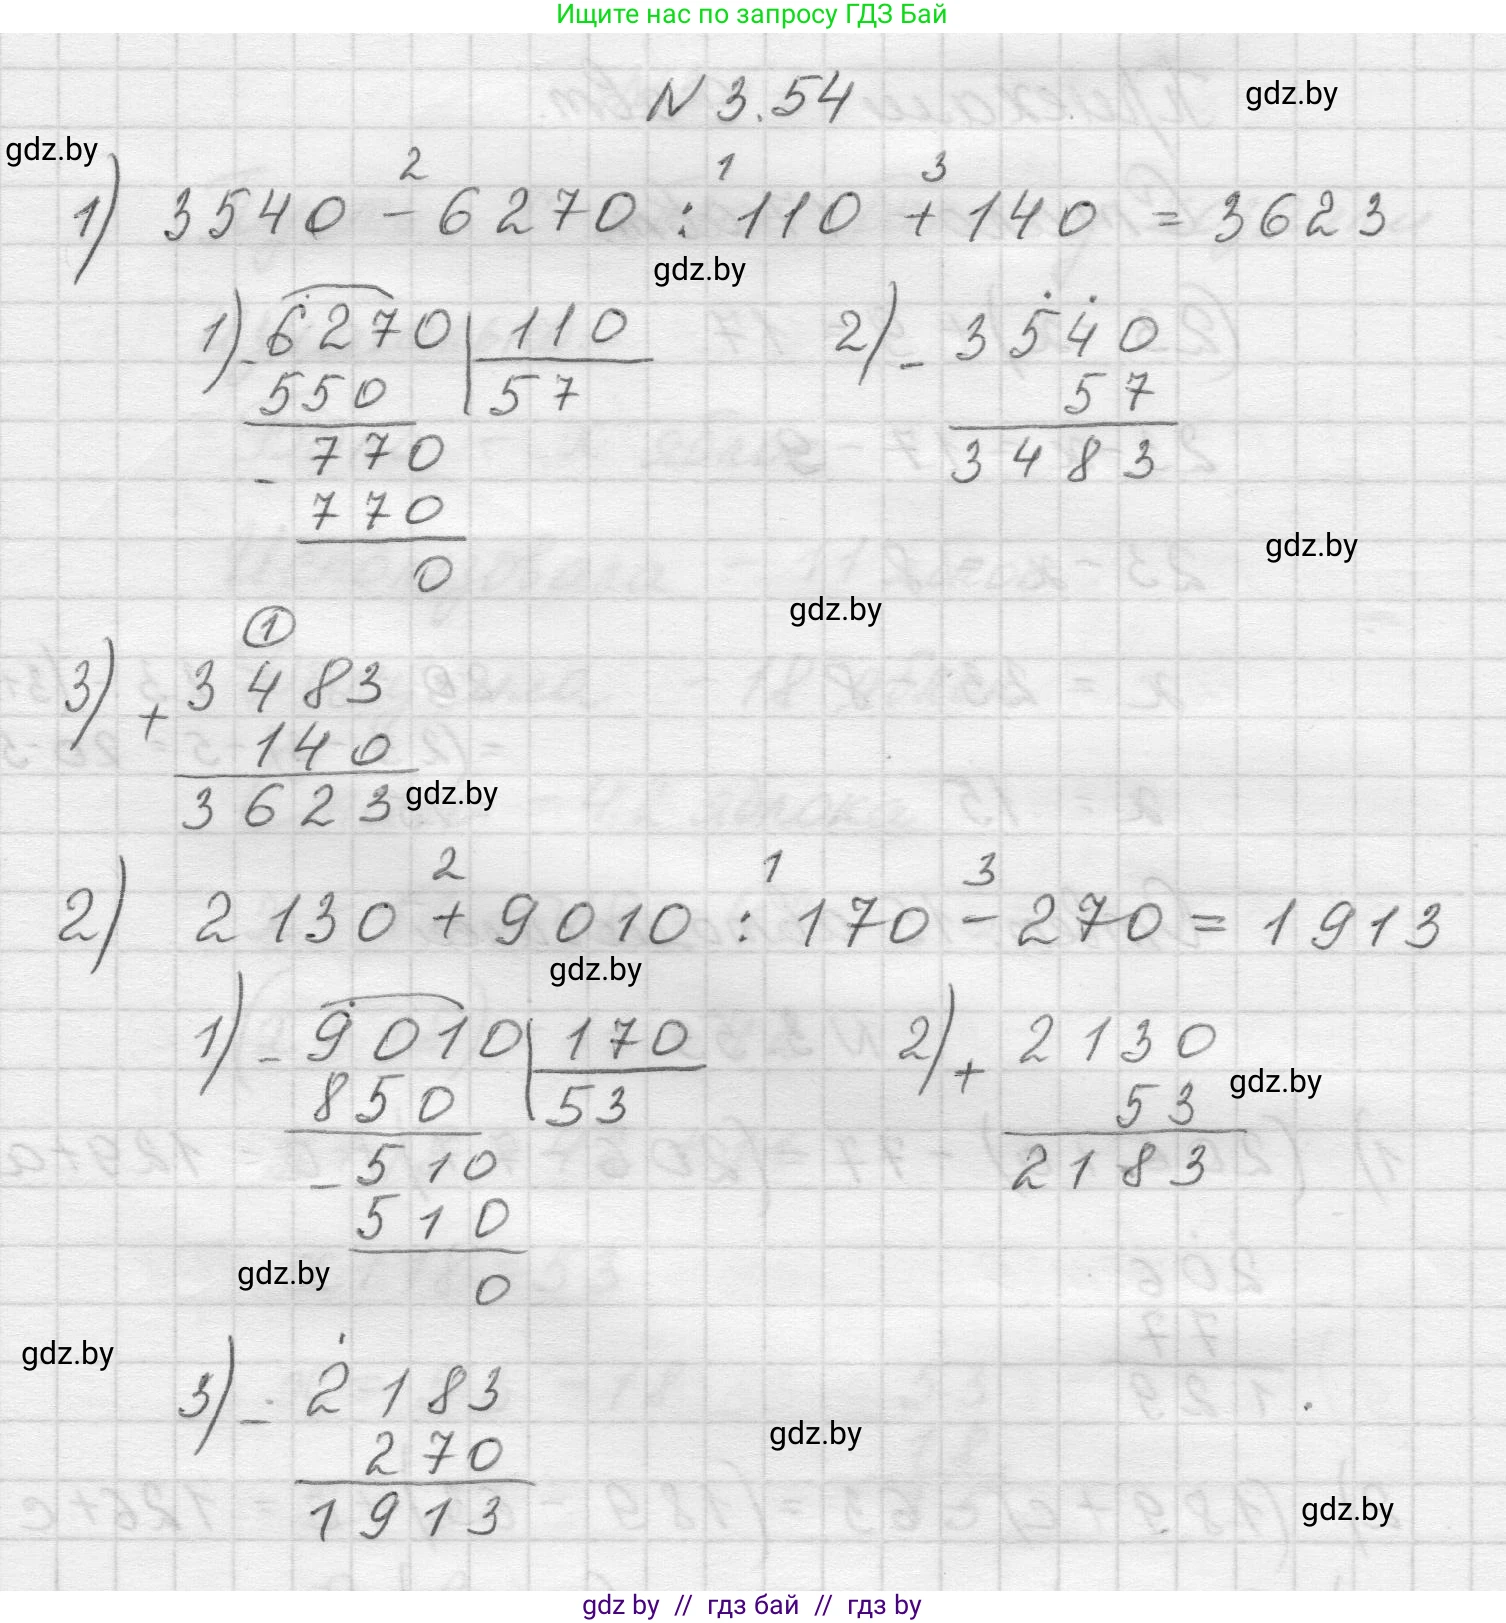 Ищите нас по запросу ГДЗ Бай
N 3.54
gdz.by
gdz.by
2 1 3
1) 3540 - 6270 : 110 + 140 = 3623
gdz.by
1) - 6270 110 2) - 3540
550 57 57
- 770 3483
770
gdz.by
0
gdz.by
1
3) + 3483
140
3623 gdz.by
2 1 3
2) 2130 + 9010 : 170 - 270 = 1913
gdz.by
1) - 9010 170 2) + 2130
850 53 53 gdz.by
- 510 2183
510
gdz.by 0
gdz.by
3) - 2183
270 gdz.by
1913
gdz.by
gdz by // гдз бай // гдз by